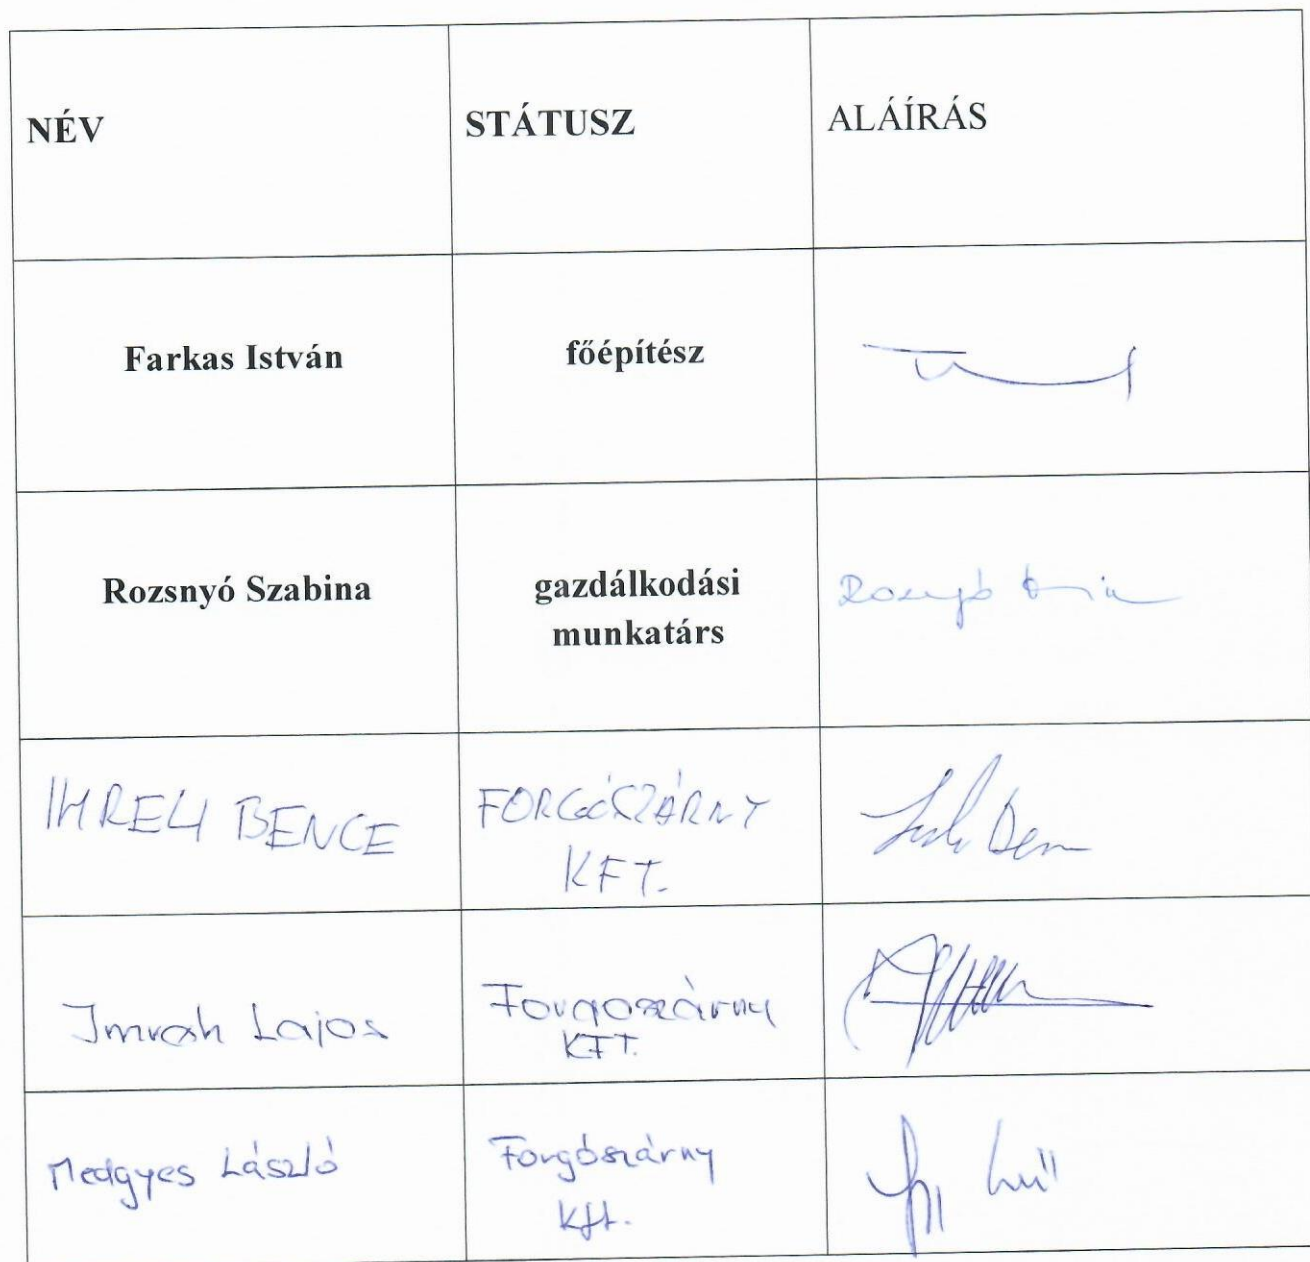 NÉV STÁTUSZ ALÁÍRÁS
Farkas István főépítész
Rozsnyó Szabina gazdálkodási
munkatárs
BENCE FORGÓSZÁRNY
KFT.
Imrah Lajos Forgoszárny
KFT.
Medgyes László Forgószárny
Kft.